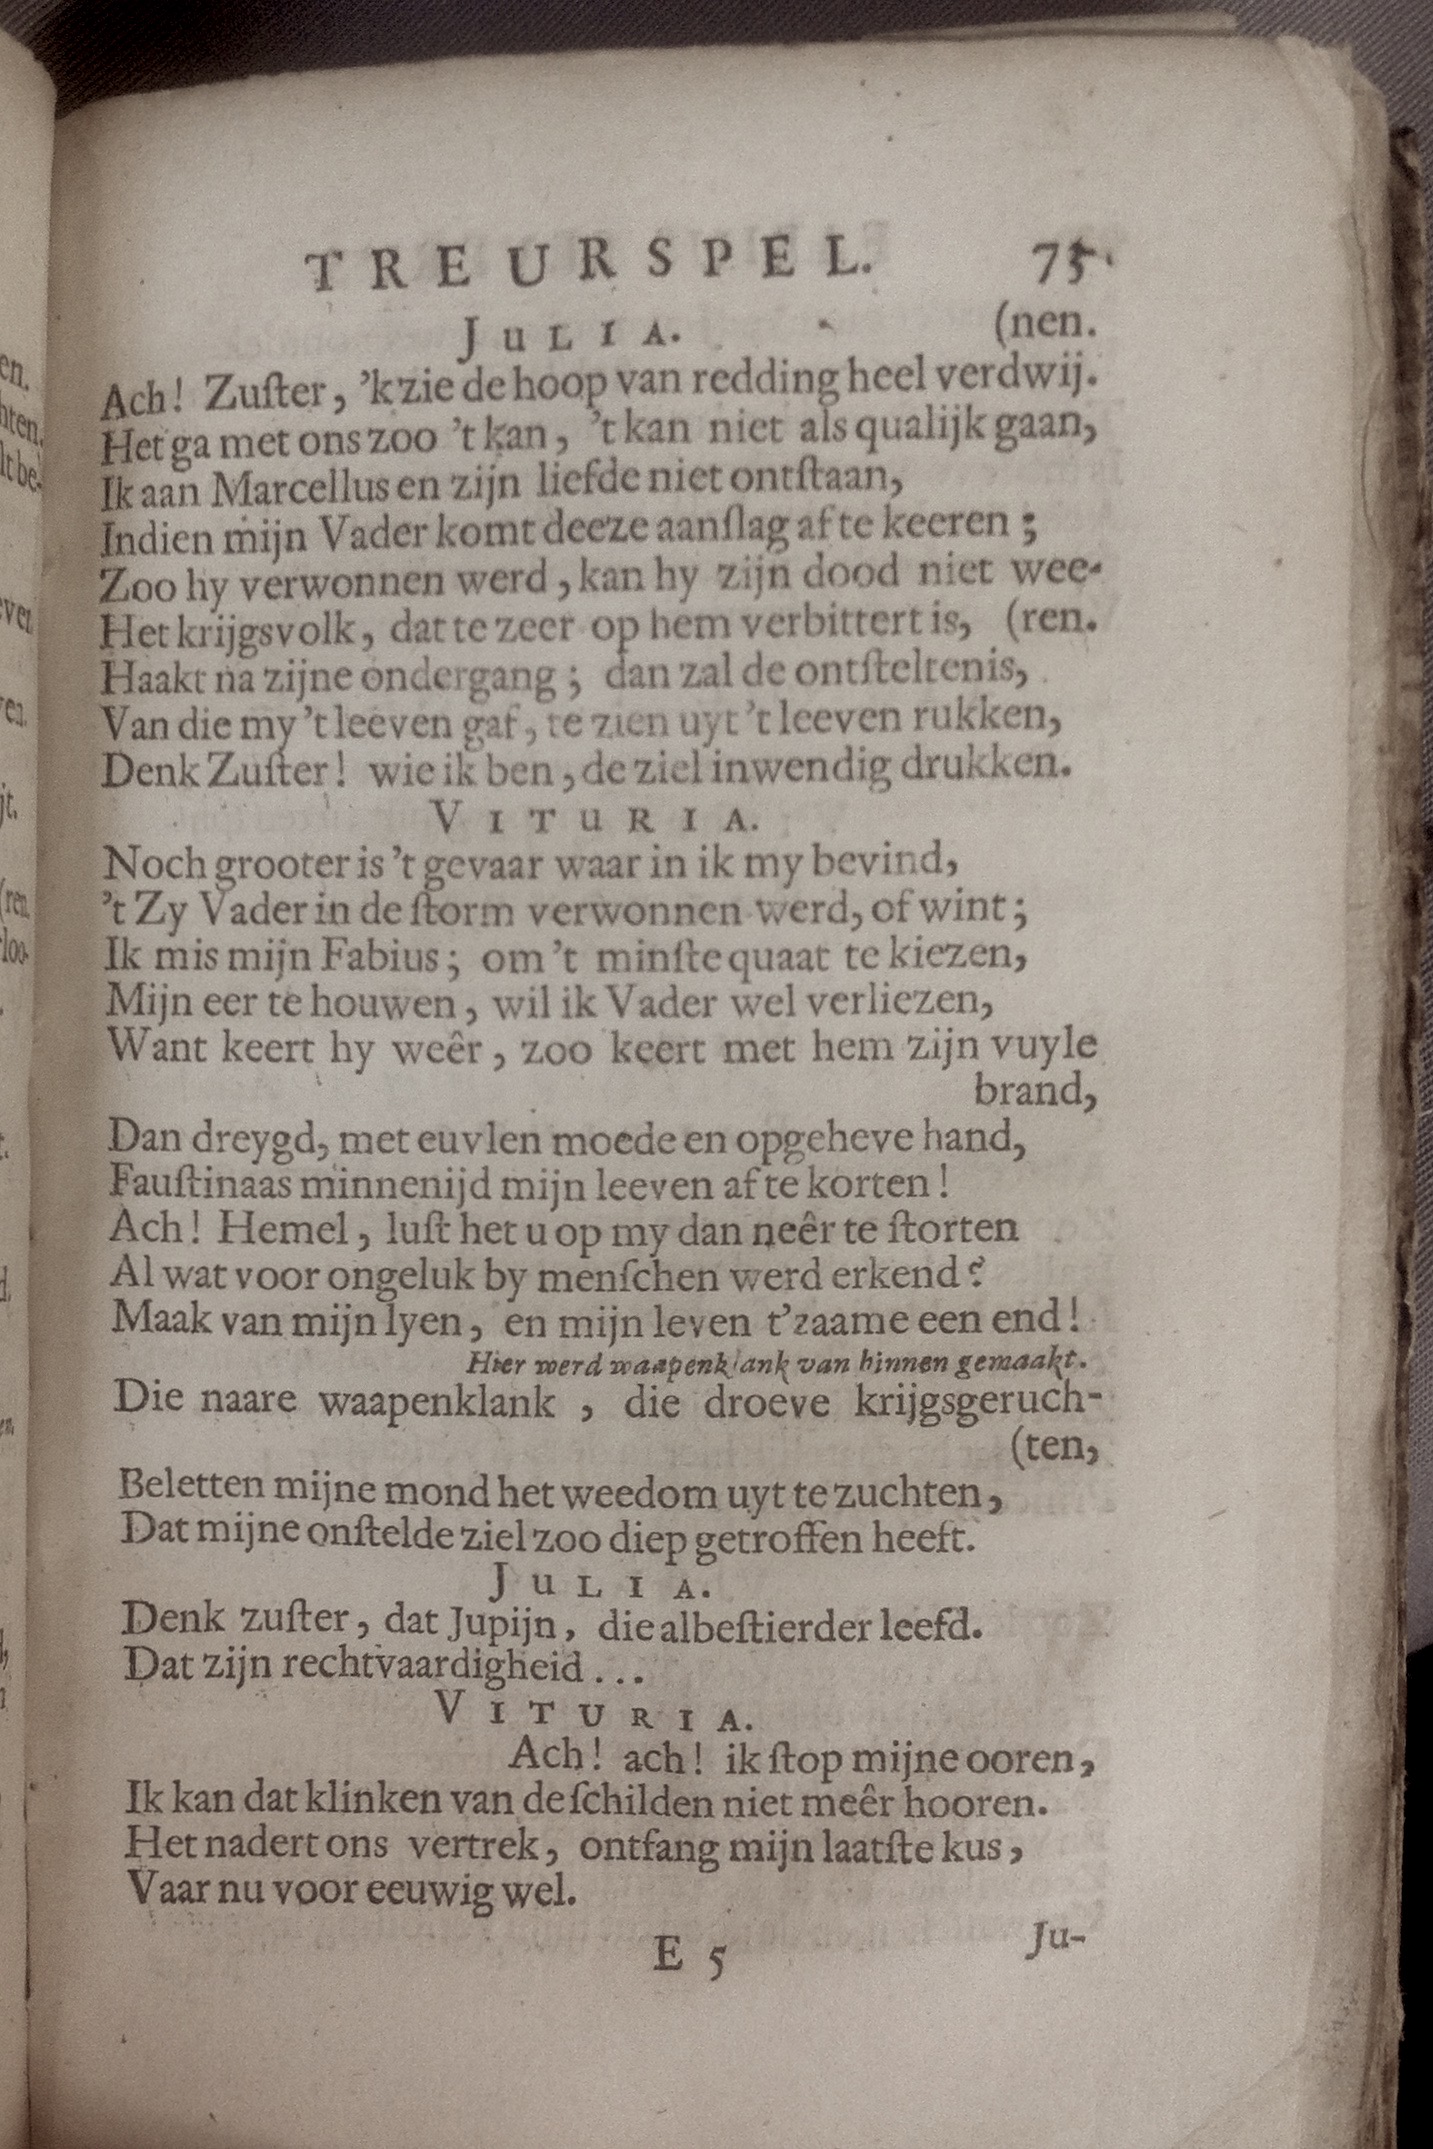 TREURSPEL. 75.
JULIA. (nen.
Ach! Zuſter, 'k zie de hoop van redding heel verdwij.
Het ga met ons zoo 't kan, 't kan niet als qualijk gaan,
Ik aan Marcellus en zijn liefde niet ontſtaan,
Indien mijn Vader komt deeze aanſlag af te keeren;
Zoo hy verwonnen werd, kan hy zijn dood niet wee-
Het krijgsvolk, dat te zeer op hem verbittert is, (ren.
Haakt na zijne ondergang; dan zal de ontſteltenis,
Van die my 't leeven gaf, te zien uyt 't leeven rukken,
Denk Zuſter! wie ik ben, de ziel inwendig drukken.
VITURIA.
Noch grooter is 't gevaar waar in ik my bevind,
't Zy Vader in de ſtorm verwonnen werd, of wint;
Ik mis mijn Fabius; om 't minſte quaat te kiezen,
Mijn eer te houwen, wil ik Vader wel verliezen,
Want keert hy weêr, zoo keert met hem zijn vuyle
brand,
Dan dreygd, met euvlen moede en opgeheve hand,
Fauſtinaas minnenijd mijn leeven af te korten!
Ach! Hemel, luſt het u op my dan neêr te ſtorten
Al wat voor ongeluk by menſchen werd erkend?
Maak van mijn lyen, en mijn leven t'zaame een end!
Hier werd waapenklank van binnen gemaakt.
Die naare waapenklank, die droeve krijgsgeruch-
(ten,
Beletten mijne mond het weedom uyt te zuchten,
Dat mijne onſtelde ziel zoo diep getroffen heeft.
JULIA.
Denk zuſter, dat Jupijn, die albeſtierder leefd.
Dat zijn rechtvaardigheid...
VITURIA.
Ach! ach! ik ſtop mijne ooren,
Ik kan dat klinken van de ſchilden niet meêr hooren.
Het nadert ons vertrek, ontfang mijn laatſte kus,
Vaar nu voor eeuwig wel.
E 5 Ju-